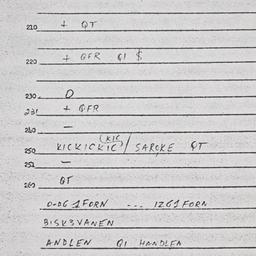 210 + QT
220 + QFR QI $
230 O
231 + QFR
240 —
(KIC
250 KICKICKIC / SAROKE QT
252 —
260 QT
O-OG 1FORN --- 1ZG1FORN
BISK3VANEN
ANDLEN QI HANDLEN